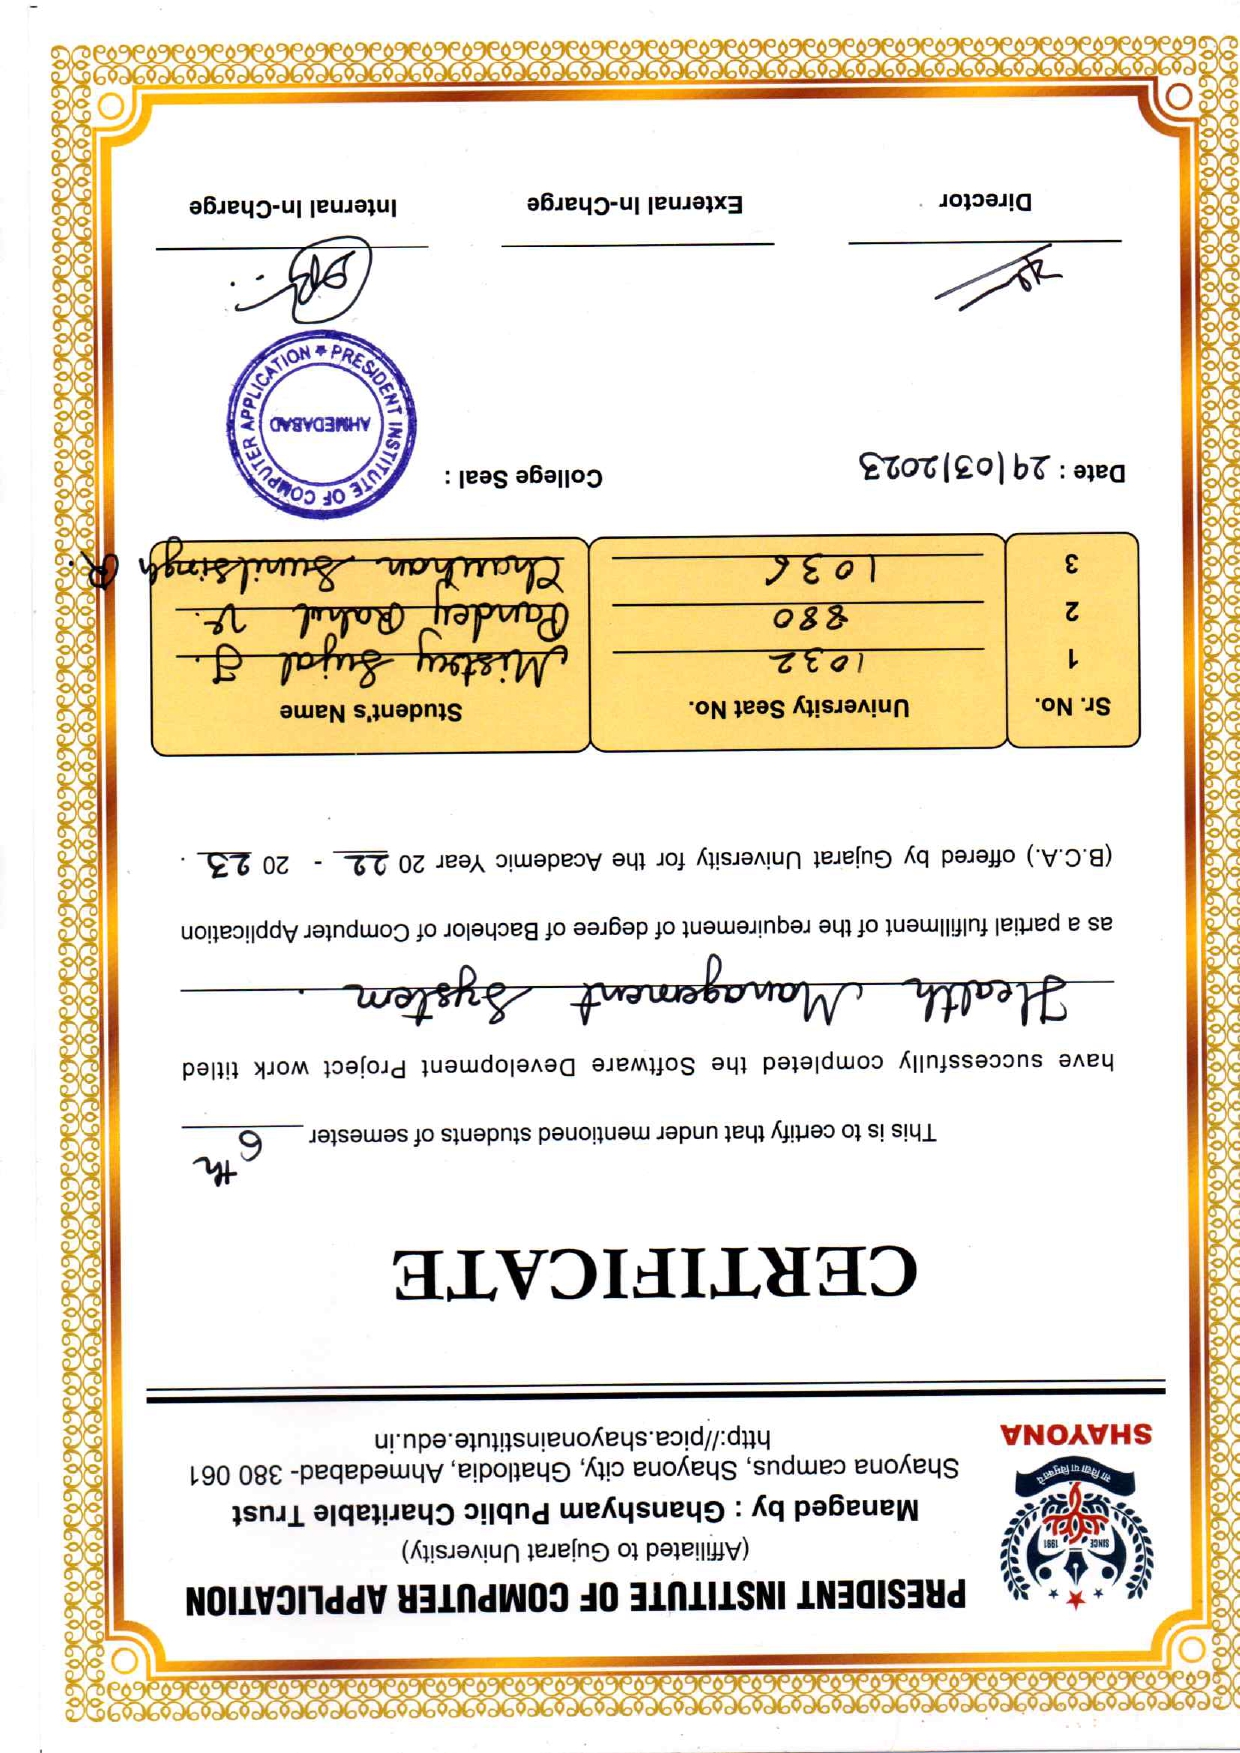 PRESIDENT INSTITUTE OF COMPUTER APPLICATION
(Affiliated to Gujarat University)
Managed by : Ghanshyam Public Charitable Trust
Shayona campus, Shayona city, Ghatlodia, Ahmedabad- 380 061
http://pica.shayonainstitute.edu.in
SINCE 1991
सा विद्या या विमुक्तये
SHAYONA
CERTIFICATE
This is to certify that under mentioned students of semester 6th
have successfully completed the Software Development Project work titled
Health Management System .
as a partial fulfillment of the requirement of degree of Bachelor of Computer Application
(B.C.A.) offered by Gujarat University for the Academic Year 20 22 - 20 23 .
Sr. No. University Seat No. Student's Name
1 1032 Mistry Sujal J.
2 880 Pandey Rahul V.
3 1036 Chauhan Sunilsingh R.
Date : 29/03/2023 College Seal :
PRESIDENT INSTITUTE OF COMPUTER APPLICATION
AHMEDABAD
Director External In-Charge Internal In-Charge